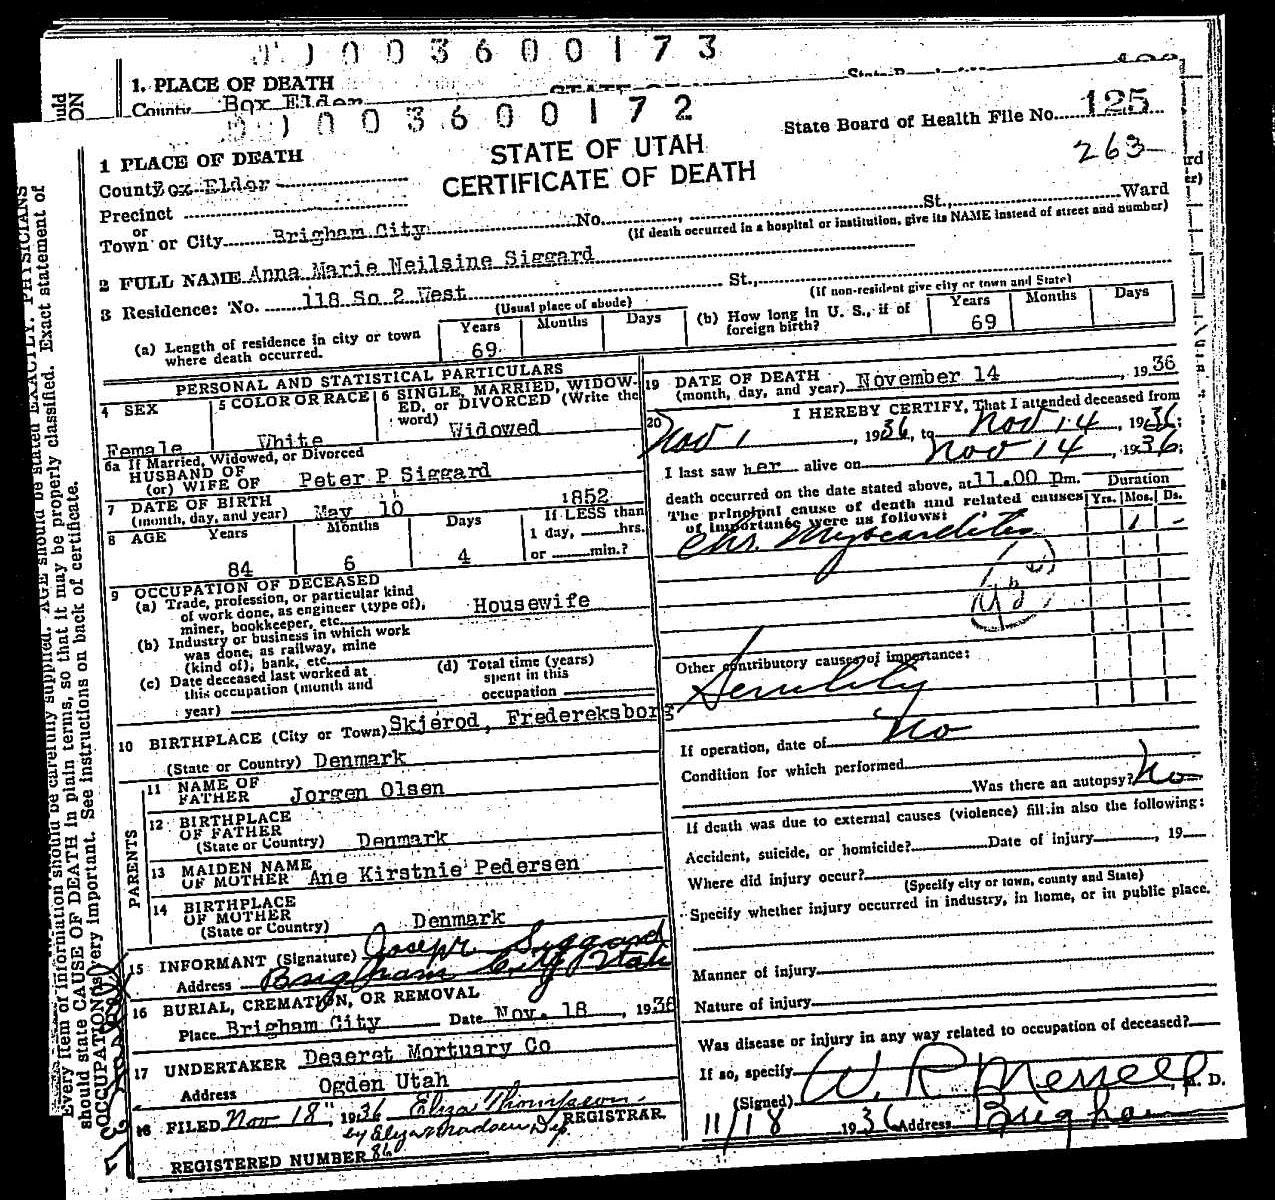 0 0 0 3 6 0 0 1 7 3
1. PLACE OF DEATH
County Box Elder
0 0 3 6 0 0 1 7 2
State Board of Health File No. 125
263
STATE OF UTAH
CERTIFICATE OF DEATH
1 PLACE OF DEATH
County Box Elder
Precinct
or
Town or City Brigham City No. , St., Ward
(If death occurred in a hospital or institution, give its NAME instead of street and number)
2 FULL NAME Anna Marie Neilsine Siggard
3 Residence: No. 118 So 2 West St.,
(Usual place of abode) (If non-resident give city or town and State)
(a) Length of residence in city or town where death occurred. Years 69 Months Days
(b) How long in U. S., if of foreign birth? Years 69 Months Days
PERSONAL AND STATISTICAL PARTICULARS
4 SEX Female
5 COLOR OR RACE White
6 SINGLE, MARRIED, WIDOW-
ED, or DIVORCED (Write the
word) Widowed
6a If Married, Widowed, or Divorced
HUSBAND OF
(or) WIFE OF Peter P Siggard
7 DATE OF BIRTH
(month, day, and year) May 10 1852
8 AGE Years 84 Months 6 Days 4
If LESS than
1 day, hrs.
or min.?
9 OCCUPATION OF DECEASED
(a) Trade, profession, or particular kind
of work done, as engineer (type of),
miner, bookkeeper, etc. Housewife
(b) Industry or business in which work
was done, as railway, mine
(kind of), bank, etc.
(c) Date deceased last worked at
this occupation (month and
year)
(d) Total time (years)
spent in this
occupation
10 BIRTHPLACE (City or Town) Skjerod, Fredereksborg
(State or Country) Denmark
PARENTS
11 NAME OF
FATHER Jorgen Olsen
12 BIRTHPLACE
OF FATHER
(State or Country) Denmark
13 MAIDEN NAME
OF MOTHER Ane Kirstnie Pedersen
14 BIRTHPLACE
OF MOTHER
(State or Country) Denmark
15 INFORMANT (Signature) Joseph Siggard
Address Brigham City Utah
16 BURIAL, CREMATION, OR REMOVAL
Place Brigham City Date Nov. 18, 1936
17 UNDERTAKER Deseret Mortuary Co
Address Ogden Utah
18 FILED Nov 18", 1936 Eliza Thompson
REGISTRAR.
by Eliza Madsen Dep.
REGISTERED NUMBER 86
19 DATE OF DEATH
(month, day, and year) November 14, 1936
20 I HEREBY CERTIFY, That I attended deceased from
Nov 1, 1936, to Nov 14, 1936;
I last saw her alive on Nov 14, 1936;
death occurred on the date stated above, at 11.00 Pm.
The principal cause of death and related causes
of importance were as follows:
Duration
Yrs. Mos. Ds.
Chr. Myocarditis 1 -
Other contributory causes of importance:
Senility
If operation, date of No
Condition for which performed
Was there an autopsy? No
If death was due to external causes (violence) fill in also the following:
Accident, suicide, or homicide? Date of injury , 19
Where did injury occur?
(Specify city or town, county and State)
Specify whether injury occurred in industry, in home, or in public place.
Manner of injury
Nature of injury
Was disease or injury in any way related to occupation of deceased?
If so, specify
(Signed) W. R. Merrell, M. D.
11/18 1936 Address Brigham
should state CAUSE OF DEATH in plain terms, so that it may be properly classified. Exact statement of
OCCUPATION is very important. See instructions on back of certificate.